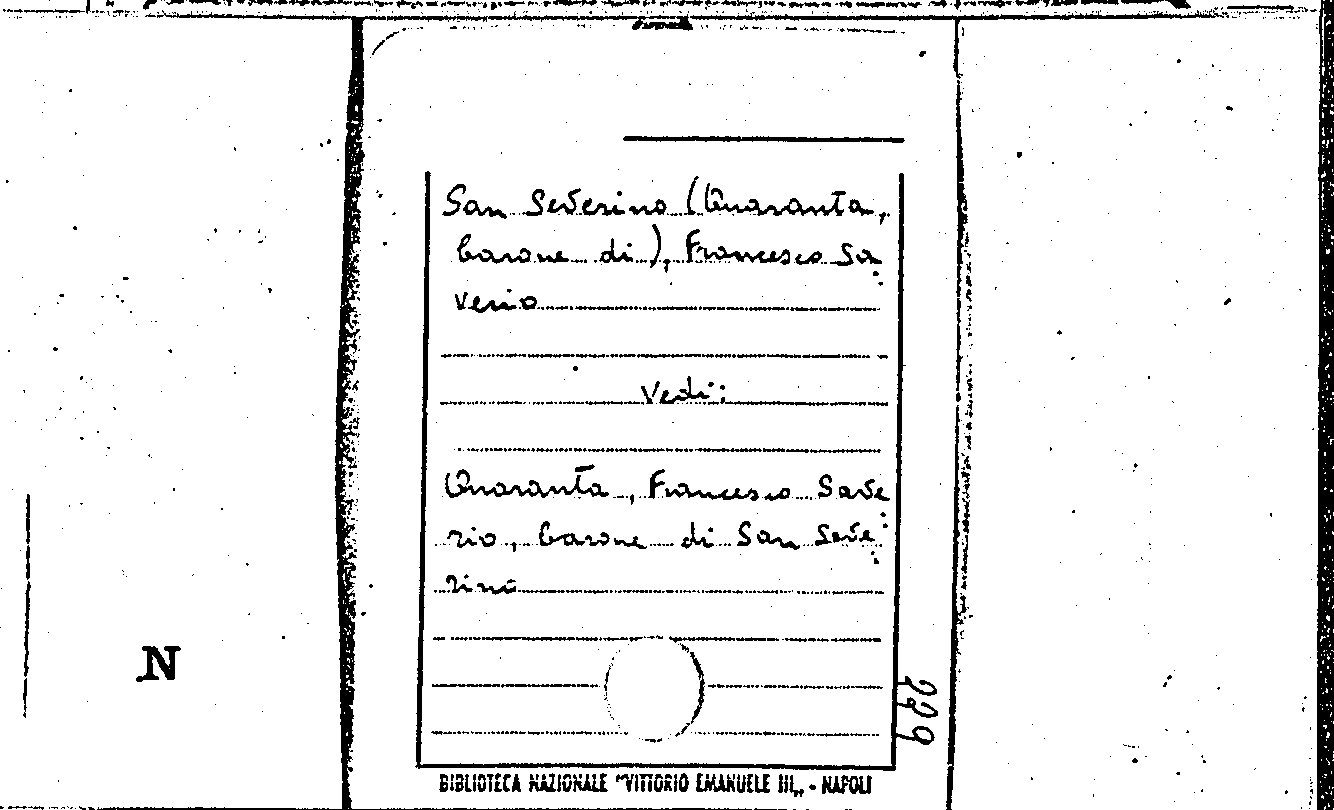 San Severino (Quaranta,
barone di), Francesco Sa
verio
Vedi:
Quaranta, Francesco Save
rio, barone di San Seve
rino
N
229
BIBLIOTECA NAZIONALE "VITTORIO EMANUELE III„ - NAPOLI